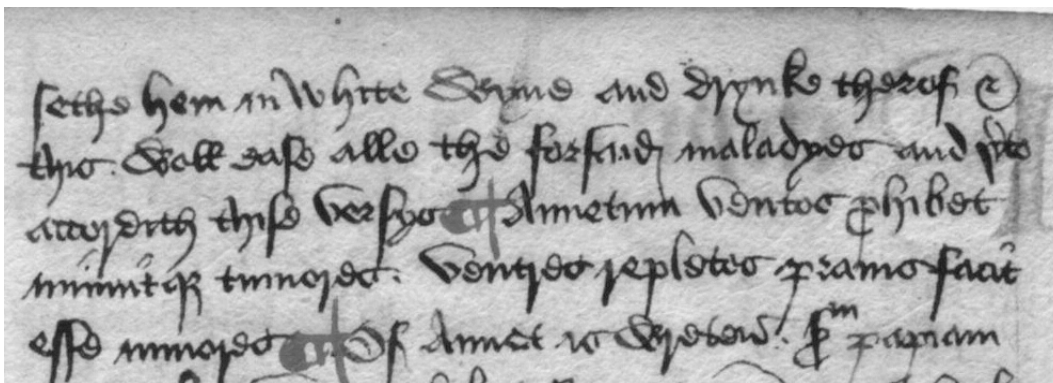 sethe hem in white Wyne and drynke therof &
this . Woll ease alle the forsaid maladyes and
accordith thise versys ¶ Anetum ventos phibet
minuitqꝫ tumores . Ventres repletos prauos facit
esse minores ¶ Of Anet is Wreten . papiam